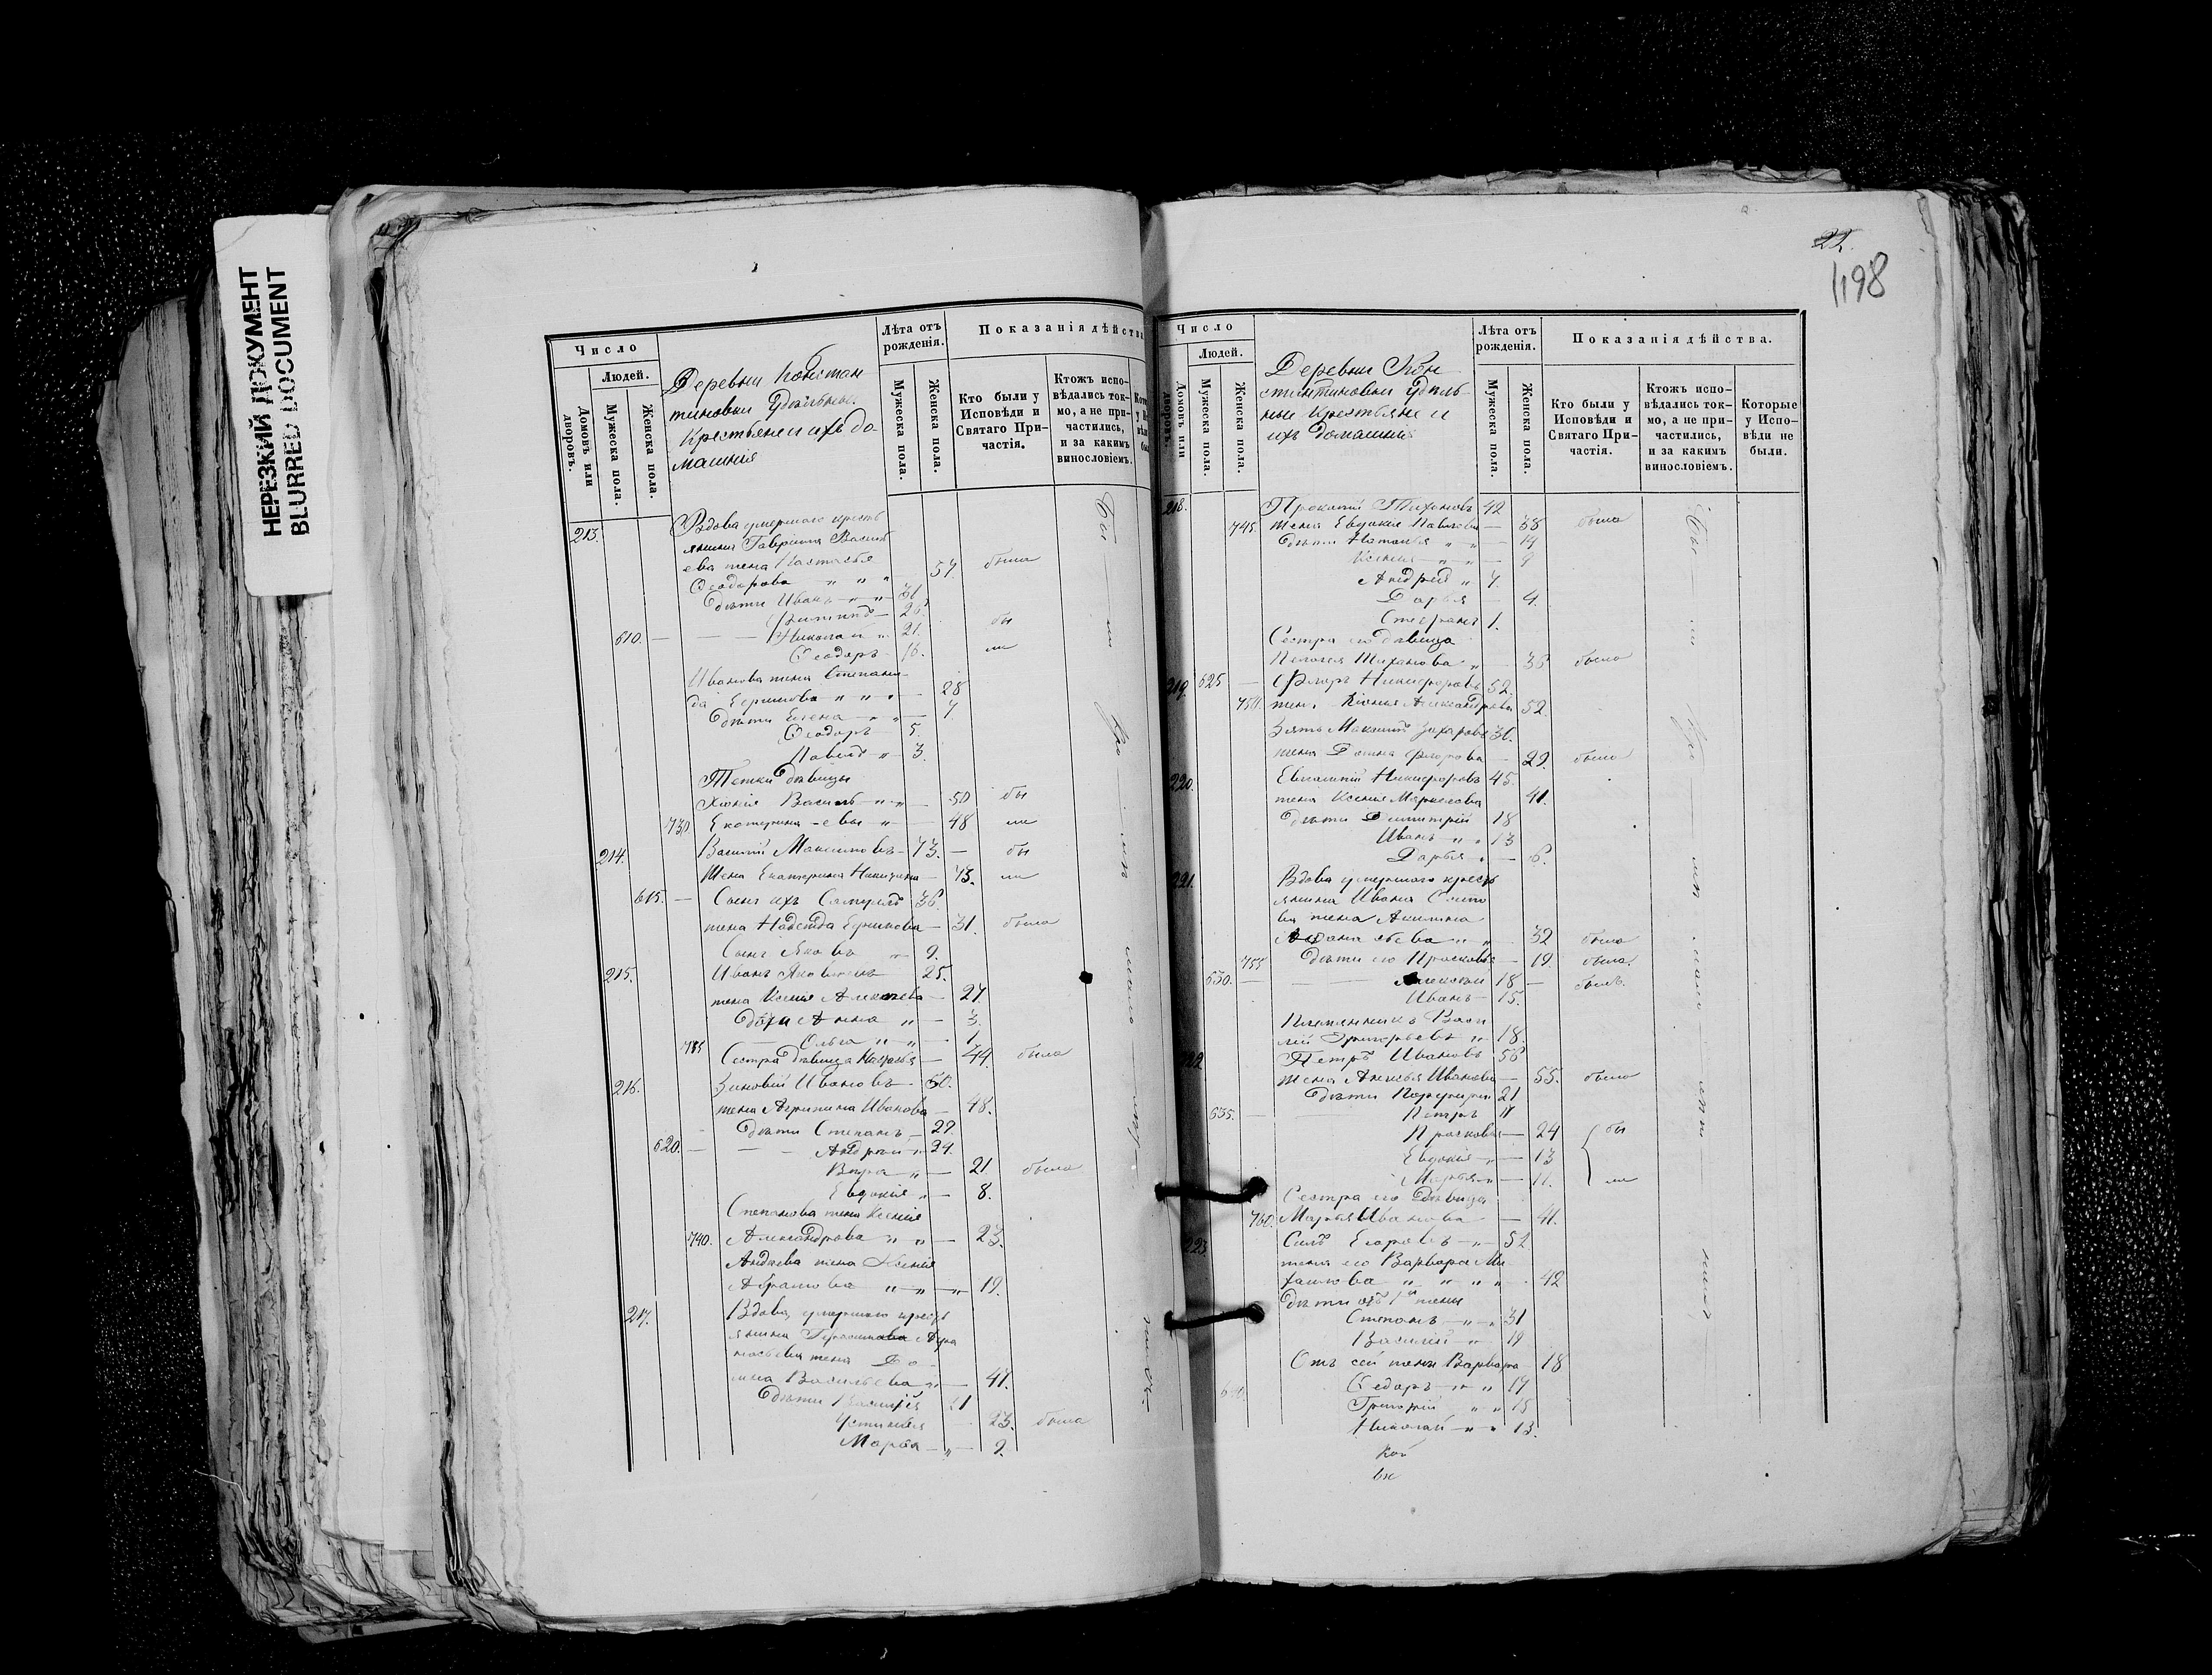 НЕРЕЗКИЙ ДОКУМЕНТ
BLURRED DOCUMENT
Число
Людей.
Домовъ или дворовъ.
Мужеска пола.
Женска пола.
Деревни Констан
тиновки Удѣльные
Крестьяне и ихъ до
машнія
Лѣта отъ рожденія.
Мужеска пола.
Женска пола.
Показанія дѣйства
Кто были у Исповѣди и Святаго Причастія.
Ктожъ исповѣдались токмо, а не причастились, и за какимъ винословіемъ.
213. Вдова умершаго кресть
янина Гавріила Василь
ева жена Настасья
Ѳеодорова " " " 57. была
Дѣти Иванъ " " 31
Филиппъ — 26 бы
610. — Николай " 21. ли
Ѳеодоръ 16.
Иванова жена Степани
да Ефимова " " " — 28
Дѣти Елена " " — 7.
Ѳеодоръ 5.
Павелъ " 3.
Тетки Дѣвицы
Хіонія Василь " " — 50 бы
730 Екатерина -евы " — 48 ли
214. Василій Максимовъ — 73. — бы
Жена Екатерина — 73. ли
615. — Сынъ ихъ Самуилъ 36.
жена Надежда Ефимова — 31. была
Сынъ Яковъ " 9.
215. Иванъ Яковлевъ 25.
жена Ксенія — 27.
Дѣти Анна " — 3.
Ольга " " — 1
735 Сестра Дѣвица Наталья — 44. была
216. Зиновій Ивановъ 50.
жена Агрипина Иванова — 48.
Дѣти Степанъ — 29.
620. — Андрей " 24.
Вѣра " — 21 была
Евдокія " — 8.
Степанова жена Ксенія
740. Александрова " " — 23.
Андреева жена Ксенія
Абрамова " " " 19.
217. Вдова умершаго кресть
янина Герасима Афа
насьева жена До
мна Васильева " — 41.
Дѣти 21
Устинья 23. была
Марья — " — 9.
22.
1198
Число
Людей.
Домовъ или дворовъ.
Мужеска пола.
Женска пола.
Деревни Кон
стинтиновки Удѣль
ные Крестьяне и
ихъ домашнія
Лѣта отъ рожденія.
Мужеска пола.
Женска пола.
Показанія дѣйства.
Кто были у Исповѣди и Святаго Причастія.
Ктожъ исповѣдались токмо, а не причастились, и за какимъ винословіемъ.
Которые у Исповѣди не были.
218. Прокопій Тихоновъ 42
745. жена Евдокія Павлова — 38 была
Дѣти Наталья " " — 14
Ксенія " " — 9
Андрей " 7.
Дарья — 4.
Стефанъ 1.
Сестра его дѣвица
Пелагея Тихонова " — 35 была
219. 625 — Флоръ Никифоровъ 52.
750. жена Ксенія Александрова 52.
Зять Максимъ Захаровъ 30.
жена Домна Флорова — 29. была
220. Евгеній Никифоровъ 45.
жена Ксенія Маркелова 41.
Дѣти Димитрій 18
Иванъ " " 13
Дарья " — 6.
221. Вдова умершаго кресть
янина Ивана
ва жена Акилина
Афанасьева " " 32 была
755 Дѣти его Прасковья — 19. была.
630. — Алексѣй 18 — былъ.
Иванъ — 15.
Племянникъ Васи
лій Григорьевъ " 18.
222 Петръ Ивановъ 56
жена Анисья Иванова — 55. была
Дѣти Порфирій 21
635. — Петръ 17
Прасковья — 24 бы
Евдокія " — 13
Марья " — 11. ли
Сестра его Дѣвица
760. Марья Иванова — 41.
223 Силъ Егоровъ " 52
жена его Варвара Ми
хайлова " " " " 42
Дѣти отъ 1й жены
Степанъ " " 31
Василій " 19
Отъ сей жены Варвара 18
640. Ѳедоръ " " 17
Григорій " " 15
Николай " " 13.